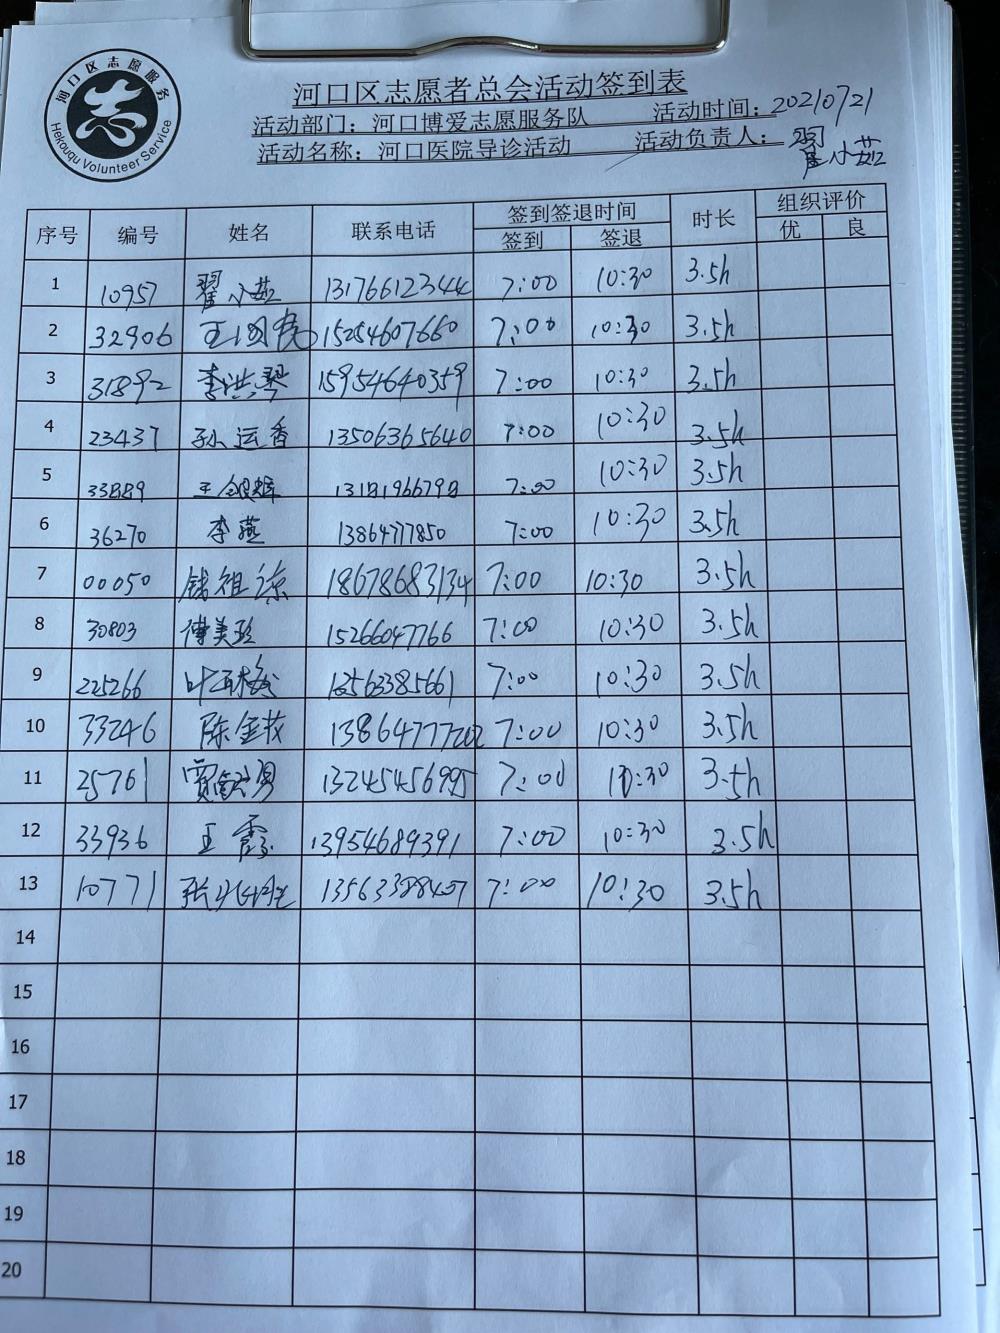 河口区志愿服务
Hekouqu Volunteer Service
河口区志愿者总会活动签到表
活动部门：河口博爱志愿服务队 活动时间：20210721
活动名称：河口医院导诊活动 活动负责人：翟小燕
序号 编号 姓名 联系电话 签到签退时间 时长 组织评价
签到 签退 优 良
1 10957 翟小燕 13176612344 7:00 10:30 3.5h
2 32906 15254607660 7:00 10:30 3.5h
3 31892 李洪琴 15954640359 7:00 10:30 3.5h
4 23437 孙运香 13506365640 7:00 10:30 3.5h
5 33889 王银辉 13181966798 7:00 10:30 3.5h
6 36270 李燕 13864777850 7:00 10:30 3.5h
7 00050 钱祖 18678683134 7:00 10:30 3.5h
8 30803 傅美珍 15266047766 7:00 10:30 3.5h
9 225266 7:00 10:30 3.5h
10 33246 陈金枝 13864777202 7:00 10:30 3.5h
11 25761 13245456995 7:00 10:30 3.5h
12 33936 王霞 13954689391 7:00 10:30 3.5h
13 10771 7:00 10:30 3.5h
14
15
16
17
18
19
20